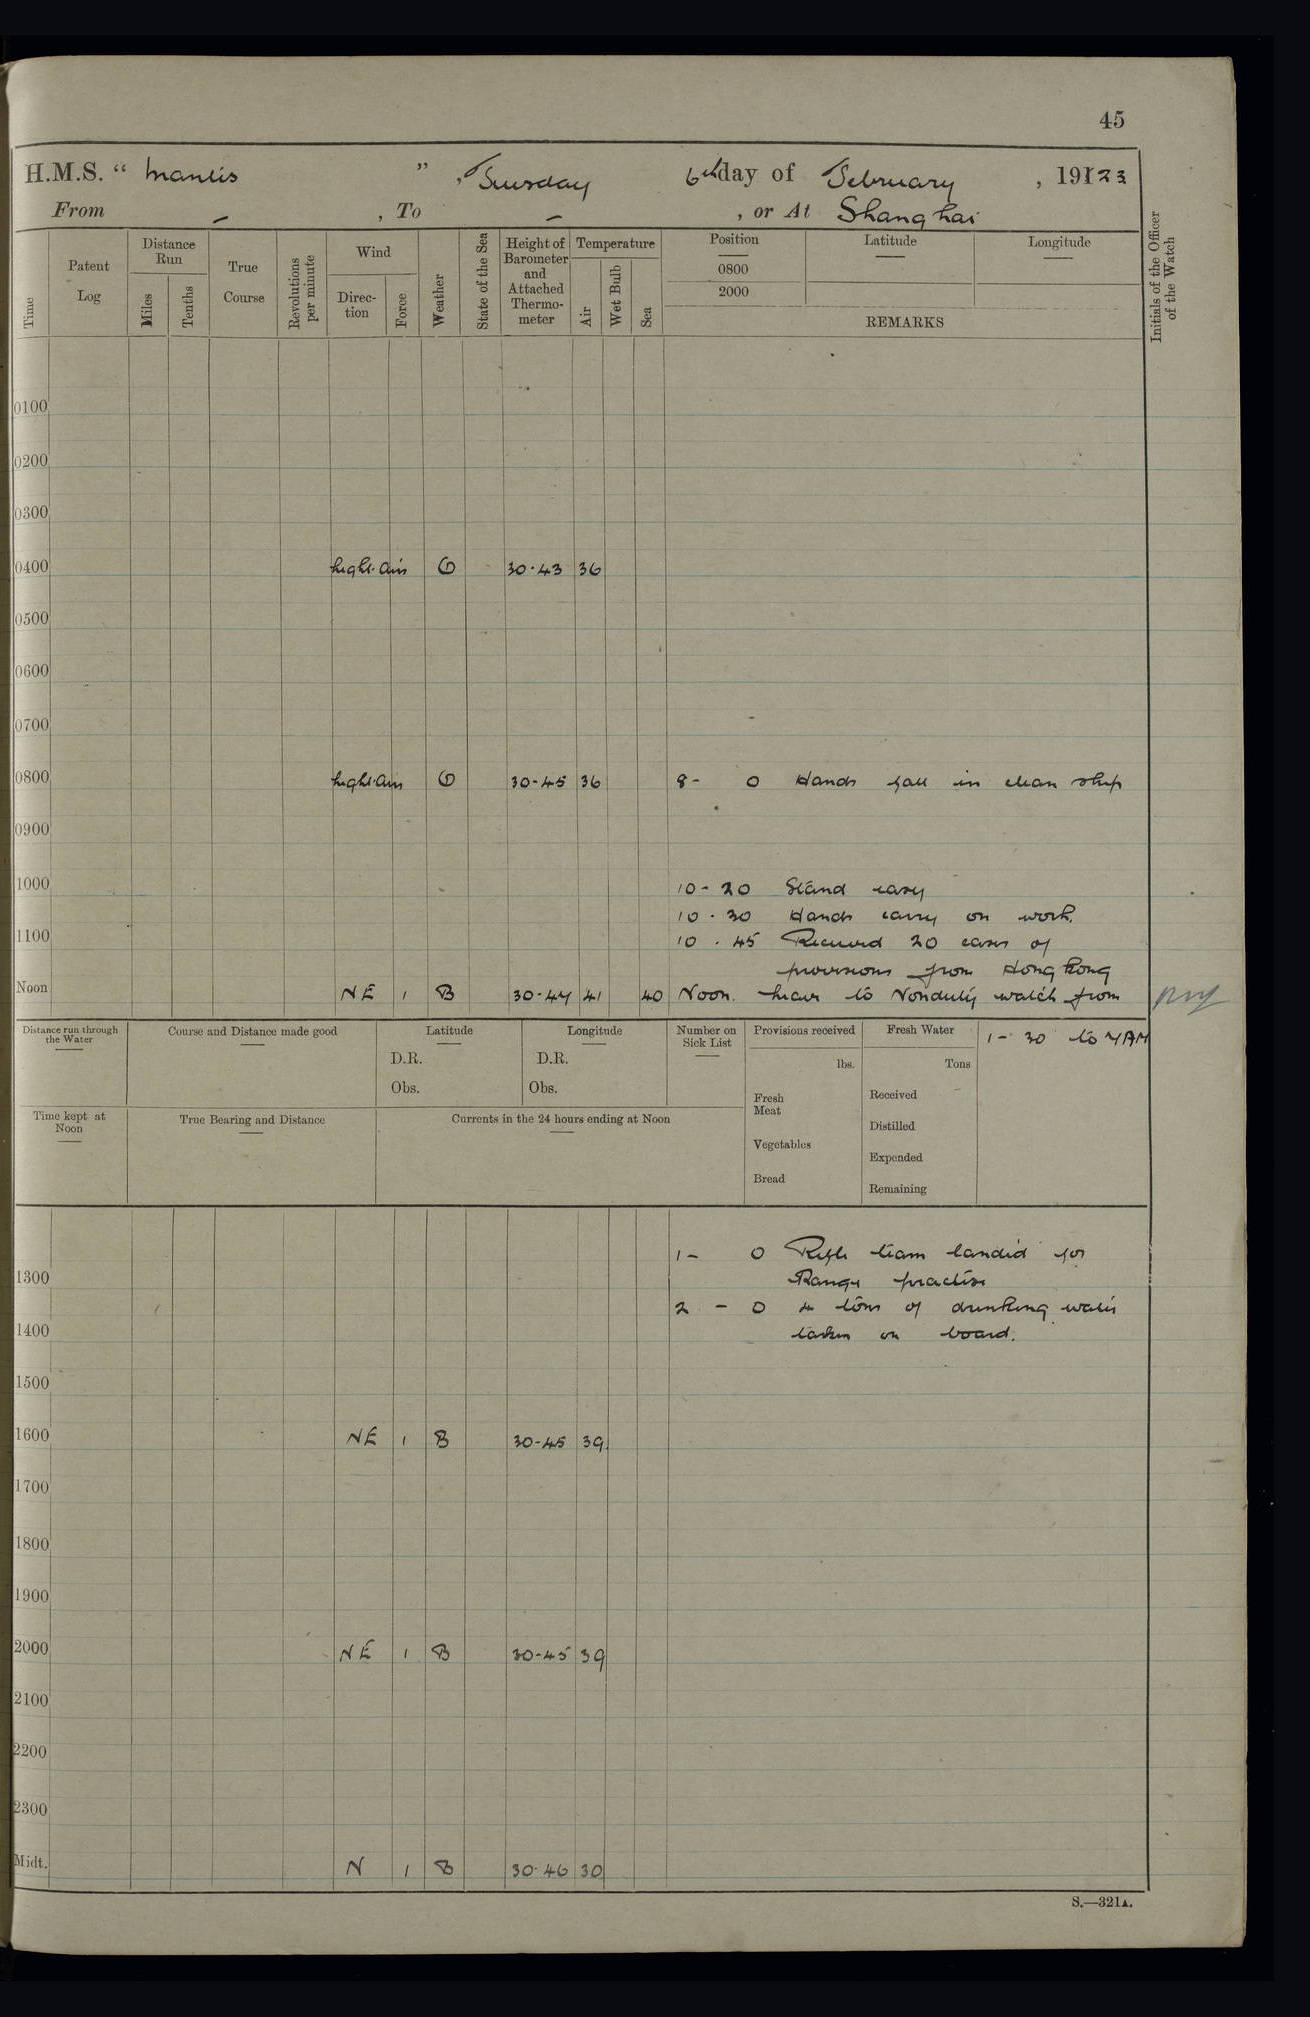 45
H.M.S. "Mantis", Tuesday 6th day of February, 19123
From -, To -, or At Shanghai
Time
Patent Log
Distance Run
Miles
Tenths
True Course
Revolutions per minute
Wind
Direction
Force
Weather
State of the Sea
Height of Barometer and Attached Thermometer
Temperature
Air
Wet Bulb
Sea
Position
0800
2000
Latitude
Longitude
REMARKS
Initials of the Officer of the Watch
0100
0200
0300
0400 Light Airs O 30.43 36
0500
0600
0700
0800 Light Airs O 30-45 36 8- 0 Hands fall in clean ship
0900
1000 10-20 Stand easy
10.30 Hands carry on work.
1100 10.45 Received 20 cases of
provisions from Hong Kong
Noon NE 1 B 30-47 41 40 Noon. Leave to Nonduty watch from
1-30 to 7AM
Distance run through the Water
Course and Distance made good
Latitude
D.R.
Obs.
Longitude
D.R.
Obs.
Number on Sick List
Provisions received
lbs.
Fresh Meat
Vegetables
Bread
Fresh Water
Tons
Received
Distilled
Expended
Remaining
Time kept at Noon
True Bearing and Distance
Currents in the 24 hours ending at Noon
1- 0 Rifle team landed for
1300 Range practise
2 - 0 4 tons of drinking water
1400 taken on board.
1500
1600 NE 1 B 30-45 39
1700
1800
1900
2000 NE 1 B 30-45 39
2100
2200
2300
Midt. N 1 B 30.46 30
S.—321A.